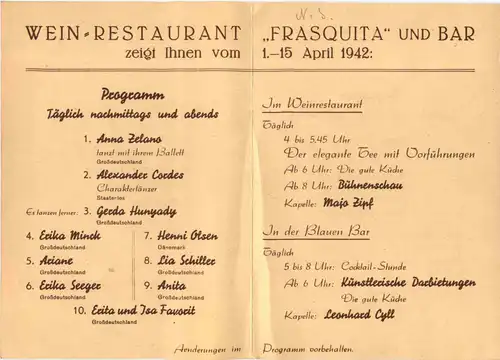 WEIN-RESTAURANT „FRASQUITA" UND BAR
zeigt Ihnen vom 1.-15 April 1942:
Programm
Täglich nachmittags und abends
1. Anna Zelano
tanzt mit ihrem Ballett
Großdeutschland
2. Alexander Cordes
Charaktertänzer
Staatenlos
Es tanzen ferner: 3. Gerda Hunyady
Großdeutschland
4. Erika Minck
Großdeutschland
5. Ariane
Großdeutschland
6. Erika Seeger
Großdeutschland
7. Henni Olsen
Dänemark
8. Lia Schiller
Großdeutschland
9. Anita
Großdeutschland
10. Erita und Isa Favorit
Großdeutschland
Im Weinrestaurant
Täglich
4 bis 5.45 Uhr
Der elegante Tee mit Vorführungen
Ab 6 Uhr: Die gute Küche
Ab 8 Uhr: Bühnenschau
Kapelle: Majo Zipf
In der Blauen Bar
Täglich
5 bis 8 Uhr: Cocktail-Stunde
Ab 6 Uhr: Künstlerische Darbietungen
Die gute Küche
Kapelle: Leonhard Cyll
Aenderungen im Programm vorbehalten.